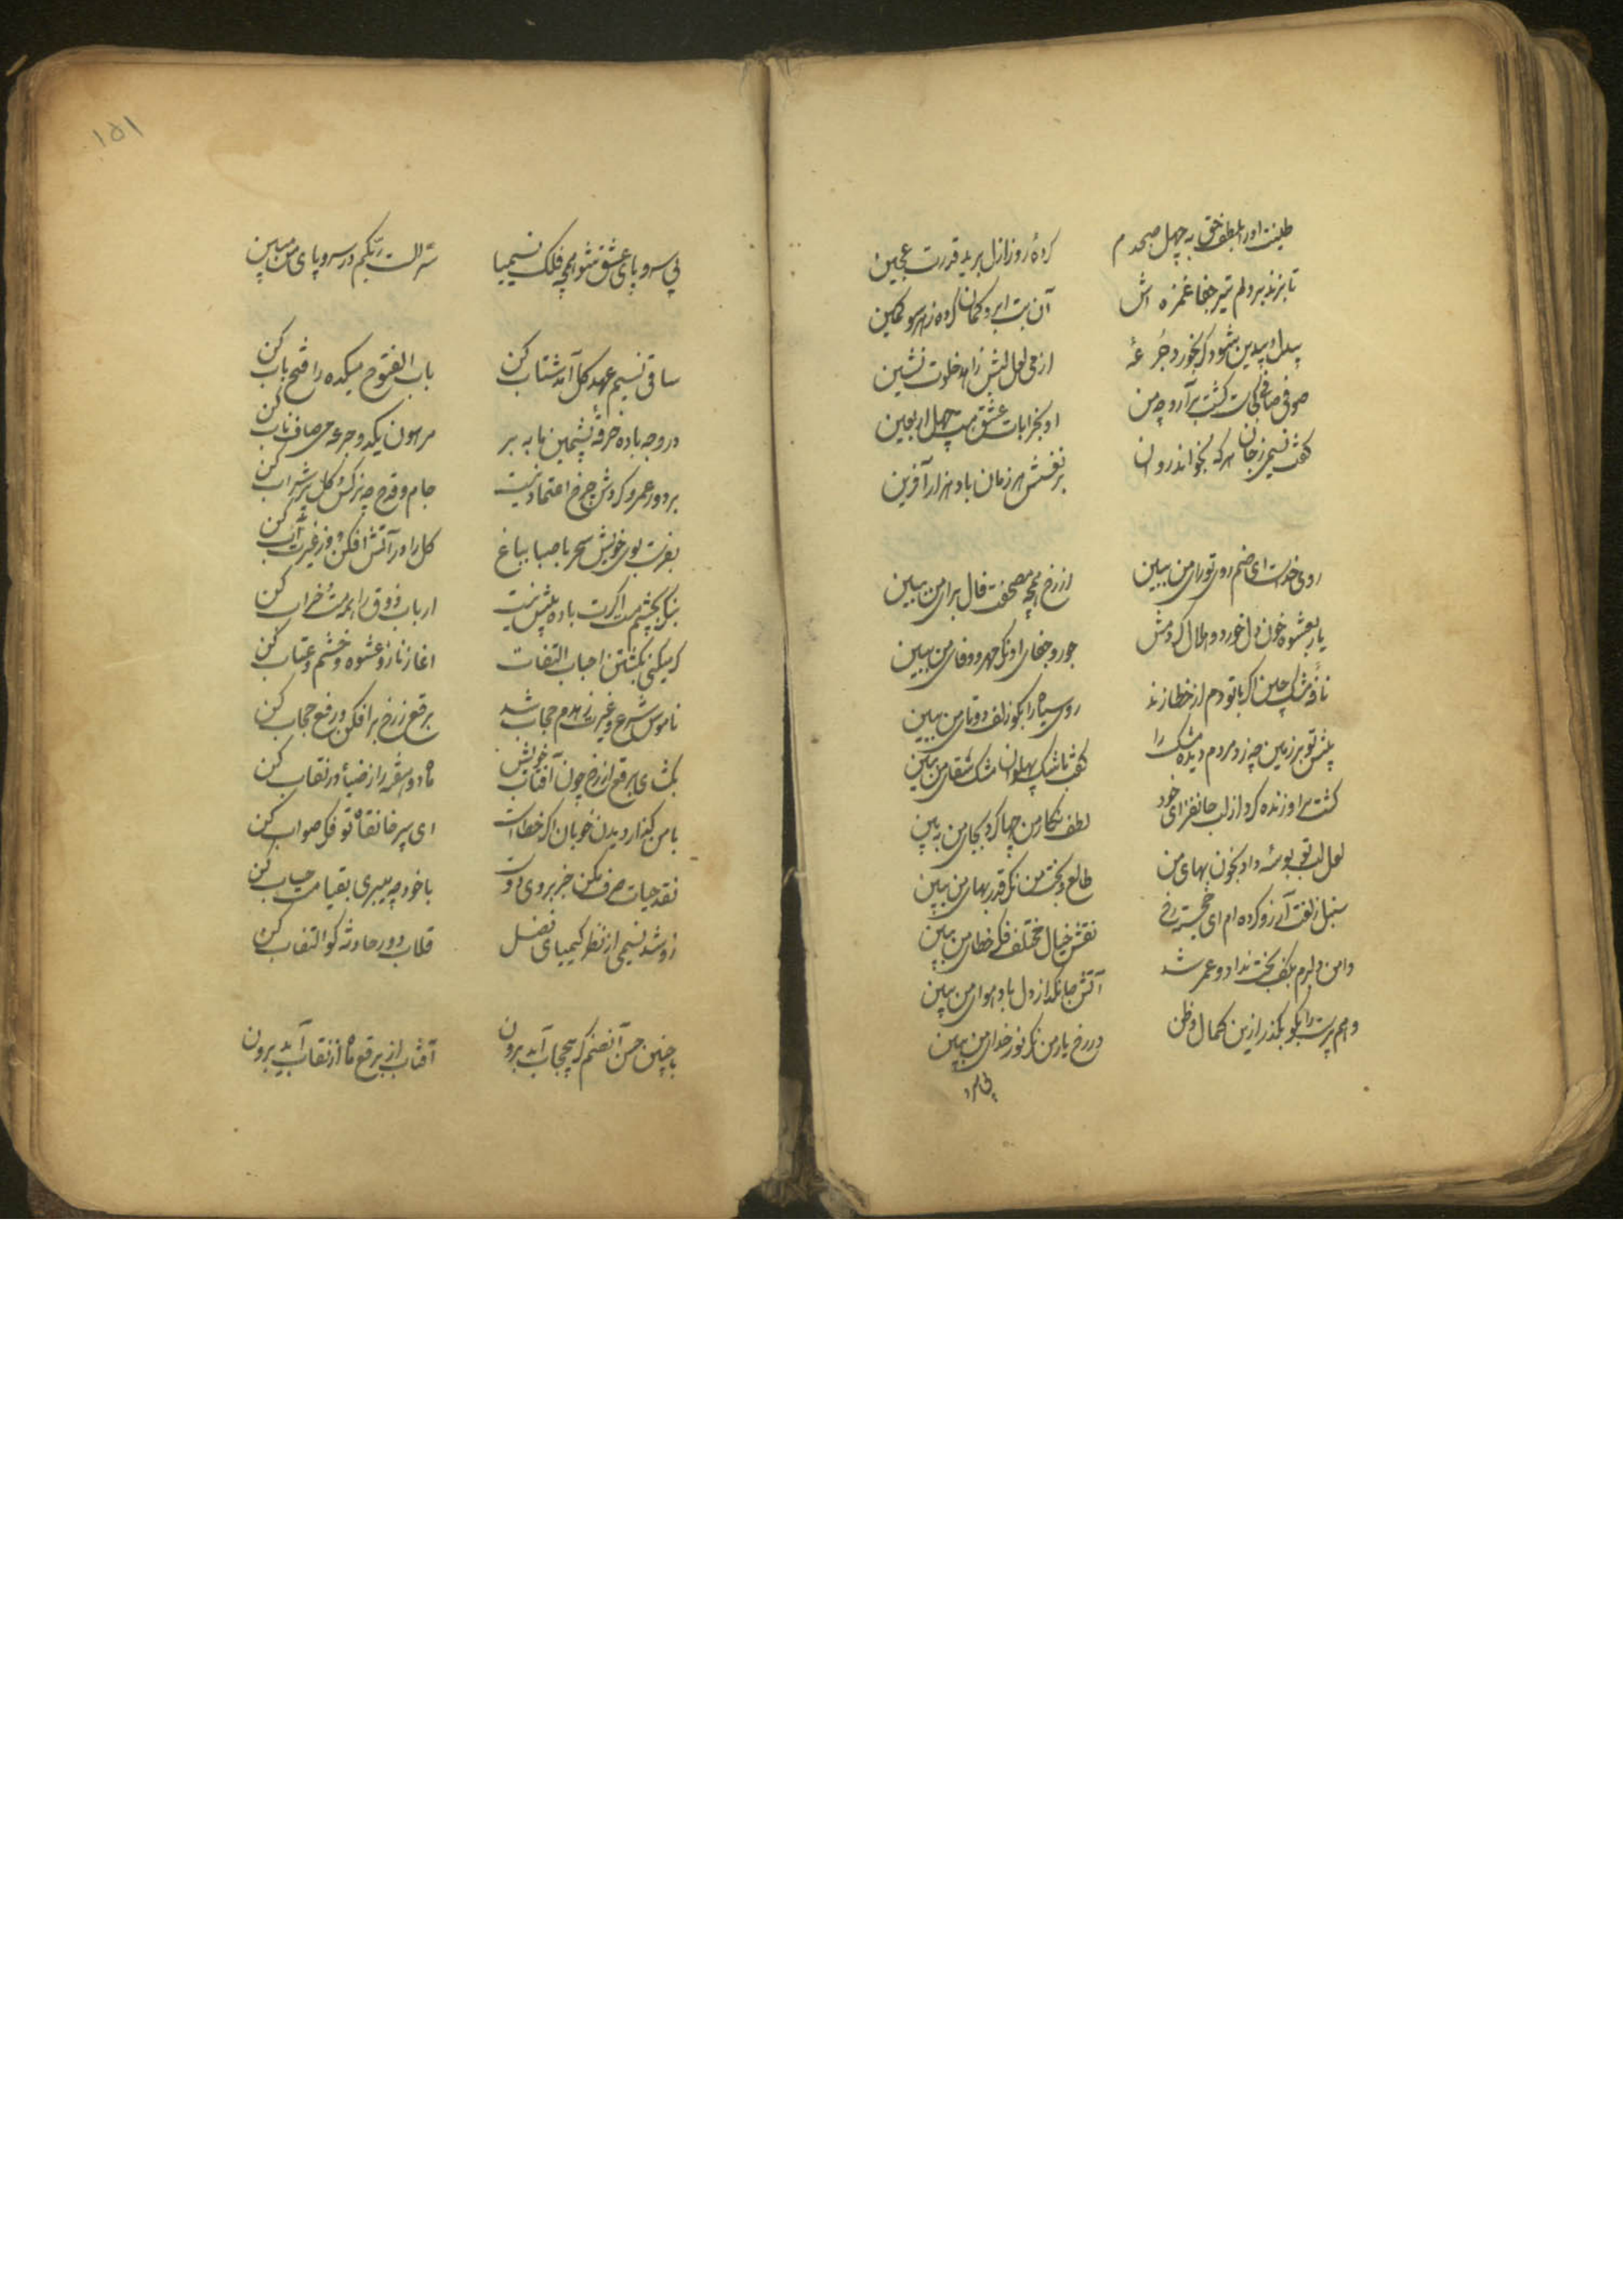 طینت او را بلطف حق به چهل صبحدم کرده روز ازل بر ید قدرت عجین
تا بزند بر دلم تیر جفا غمزه اش آن بت ابرو کمان کرده ز هر سو کمین
بیدل و بیدین شود گر بخورد جرعهٔ از می لعل لبش زاهد خلوت نشین
صوفی صافی کجاست گشت برآرد چو من او بخرابات عشق بیست چهل اربعین
گفت نسیمی ز جان هر که بخواند روان بر نفسش هر زمان باد هزار آفرین
روی خداست ای صنم روی تو رای من ببین از رخ همچو مصحفت فال برای من ببین
یار بعشوه خون دل خورد و حلال کردمش جور و جفای او نگر مهر و وفای من ببین
نافهٔ مشک چین اگر با تو دم از خطا زند روی سیاه را بگو زلف دوتای من ببین
پیش تو بر زمین چو زد مردم دیده مشک را گفت تا شک پهلوان مشک سقای من ببین
کشت مرا و زنده کرد از لب جانفزای خود لطف نگار من چها کرد بجای من ببین
لعل لب تو بوسه داد بخون بهای من طالع و بخت من نگر قدر بهای من ببین
سنبل زلفت آرزو کرده ام ای خجسته رخ نقش خیال مختلف فکر خطای من ببین
دامن دلبرم بکف بخت نداد و عمر شد آتش جانگداز دل باد هوای من ببین
وهم پرست را بگو بگذر ازین کمال و ظن در رخ یار من نگر نور خدای من ببین
بی سرو
۱۵۱
بی سر و پای عشق شو همچو فلک نسیمیا سرّ الست ربکم در سر و پای من ببین
ساقی نسیم عهد گل آمد شتاب کن باب الفتوح میکده را فتح باب کن
در وجه باده خرقهٔ پشمین ما به بر مرهون یکدو جرعه می صاف ناب کن
بر دور عمر و گردش چرخ اعتماد نیست جام و قدح چو نرگس و گل پر شراب کن
بفرست بوی خویش سحر با صبا بباغ گل را در آتش افکن و از غیرت آب کن
بنگر بچشم مست اگرت باده پیش نیست ارباب ذوق را همه مست و خراب کن
گر میکنی بکشتن احباب التفات اغاز ناز و عشوه و خشم و عتاب کن
ناموس شرع و غیرت زهدم حجاب شد برقع ز رخ برافکن و رفع حجاب کن
بگشای برقع از رخ چون آفتاب خویش ماه دو هفته را ز ضیا در نقاب کن
با من گذار دیدن خوبان اگر خطاست ای پیر خانقاه تو فکر صواب کن
نقد حیات صرف مکن جز بروی دوست با خود چه میبری بقیامت حساب کن
زر شد نسیمی از نظر کیمیای فضل قلاب دور حادثه کو التفات کن
با چنین حسن آنصنم گر بیحجاب آید برون آفتاب از برقع ماه از نقاب آید برون